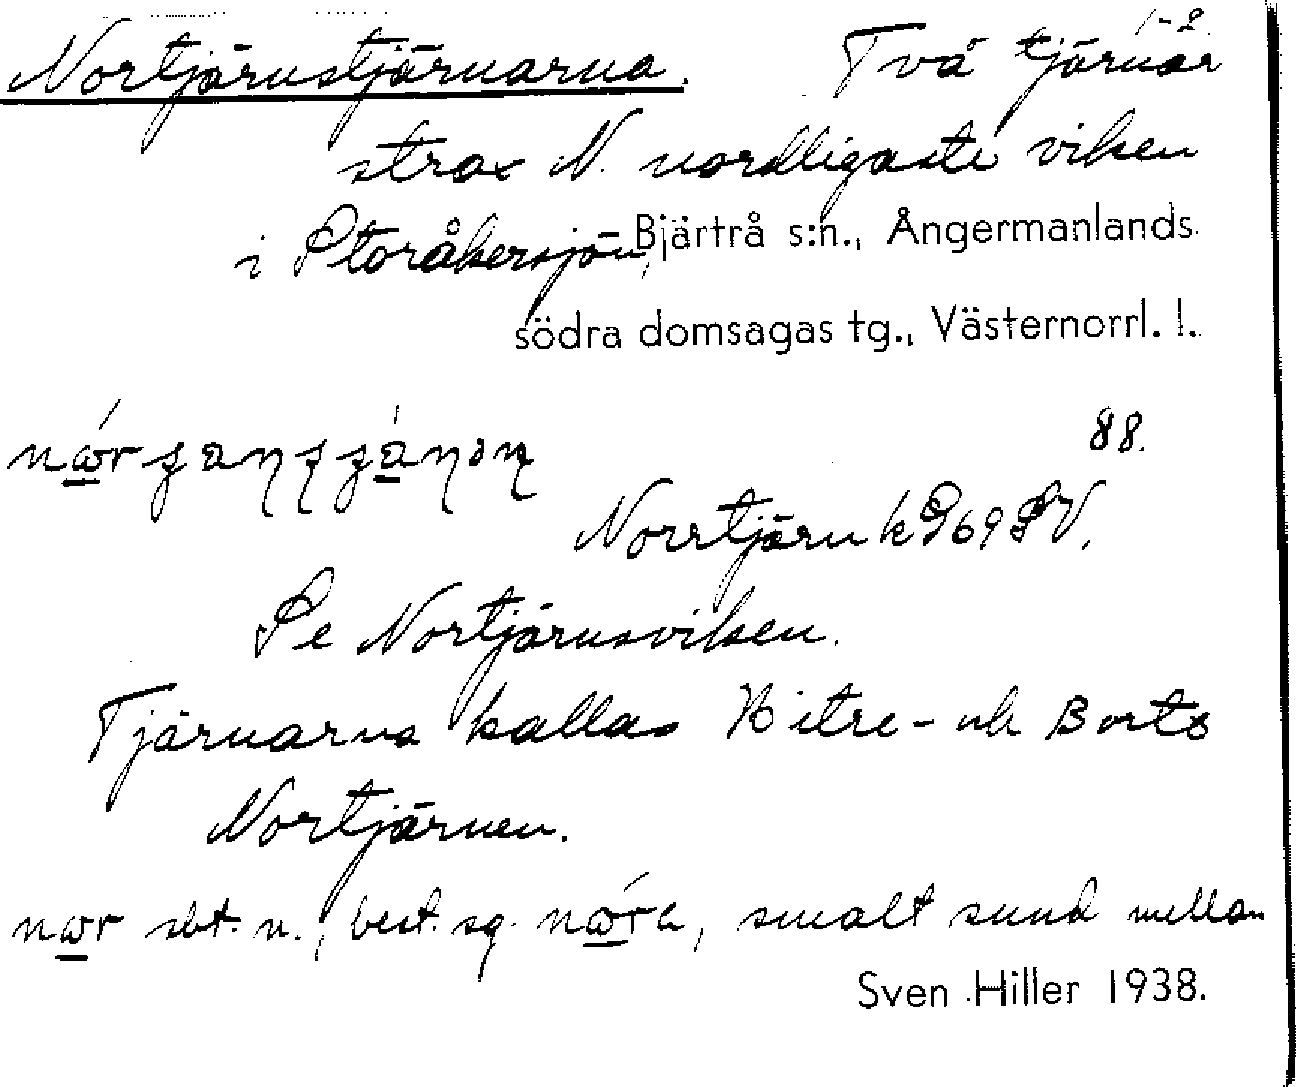 1-2
Nortjärnstjärnarna. Två tjärnar
strax N. nordligaste viken
i Storåkersjön, Bjärtrå s:n., Ångermanlands
södra domsagas tg., Västernorrl. l.
88.
Norrtjärn k G69 SV.
Se Nortjärnsviken.
Tjärnarna kallas Hitre- och Borts
Nortjärnen.
sbt. n., best. sg. smalt sund mellan
Sven Hiller 1938.